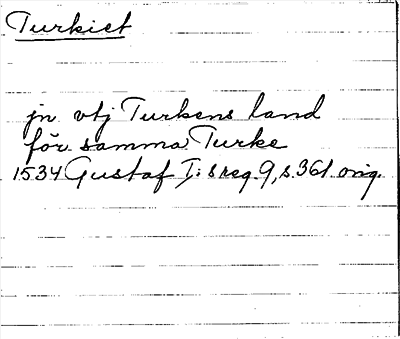 Turkiet
jn vtj Turkens land
för samma Turke
1534 Gustaf I:s reg. 9, s. 361. orig.